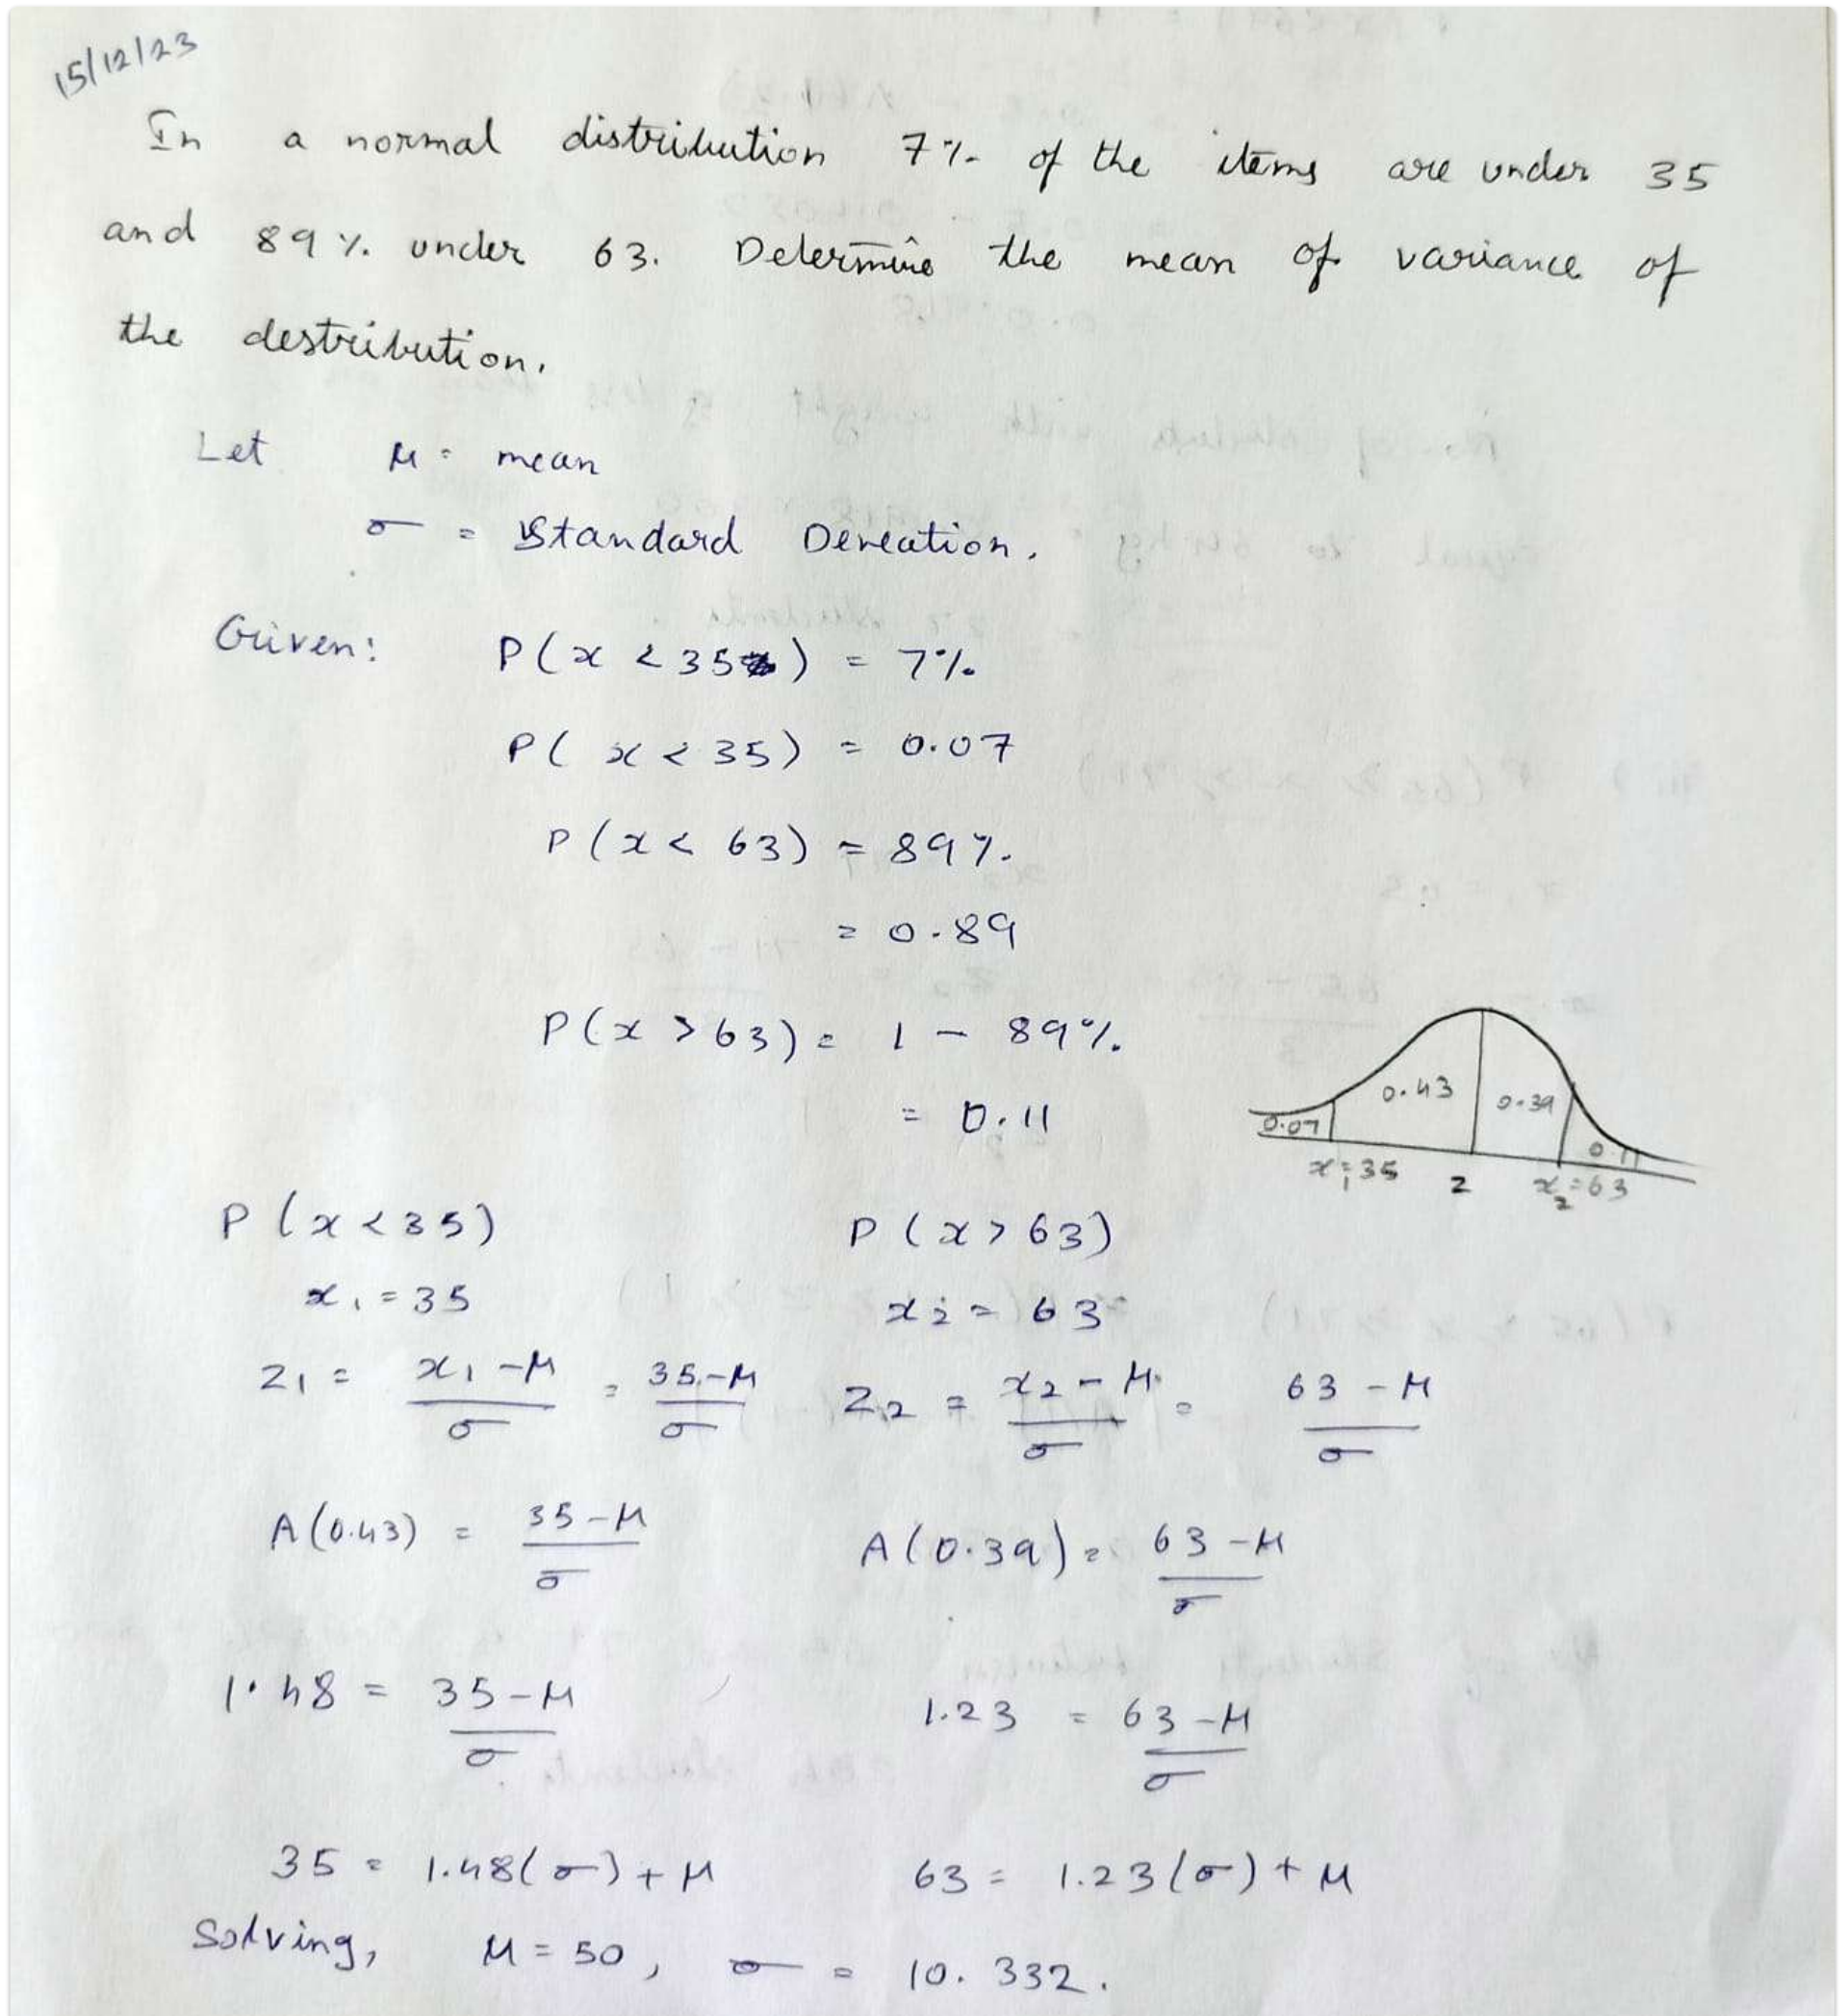 15/12/23
In a normal distribution 7% of the items are under 35
and 89% under 63. Determine the mean of variance of
the destribution.
Let μ = mean
σ = Standard Deveation.
Given: P(x < 35) = 7%
P(x < 35) = 0.07
P(x < 63) = 89%
= 0.89
P(x > 63) = 1 - 89%
= 0.11
0.43 0.39
0.07 0.11
x₁=35 z x₂=63
P(x < 35) P(x > 63)
x₁ = 35 x₂ = 63
z₁ = (x₁ - μ)/σ = (35 - μ)/σ z₂ = (x₂ - μ)/σ = (63 - μ)/σ
A(0.43) = (35 - μ)/σ A(0.39) = (63 - μ)/σ
1.48 = (35 - μ)/σ 1.23 = (63 - μ)/σ
35 = 1.48(σ) + μ 63 = 1.23(σ) + μ
Solving, μ = 50, σ = 10.332.